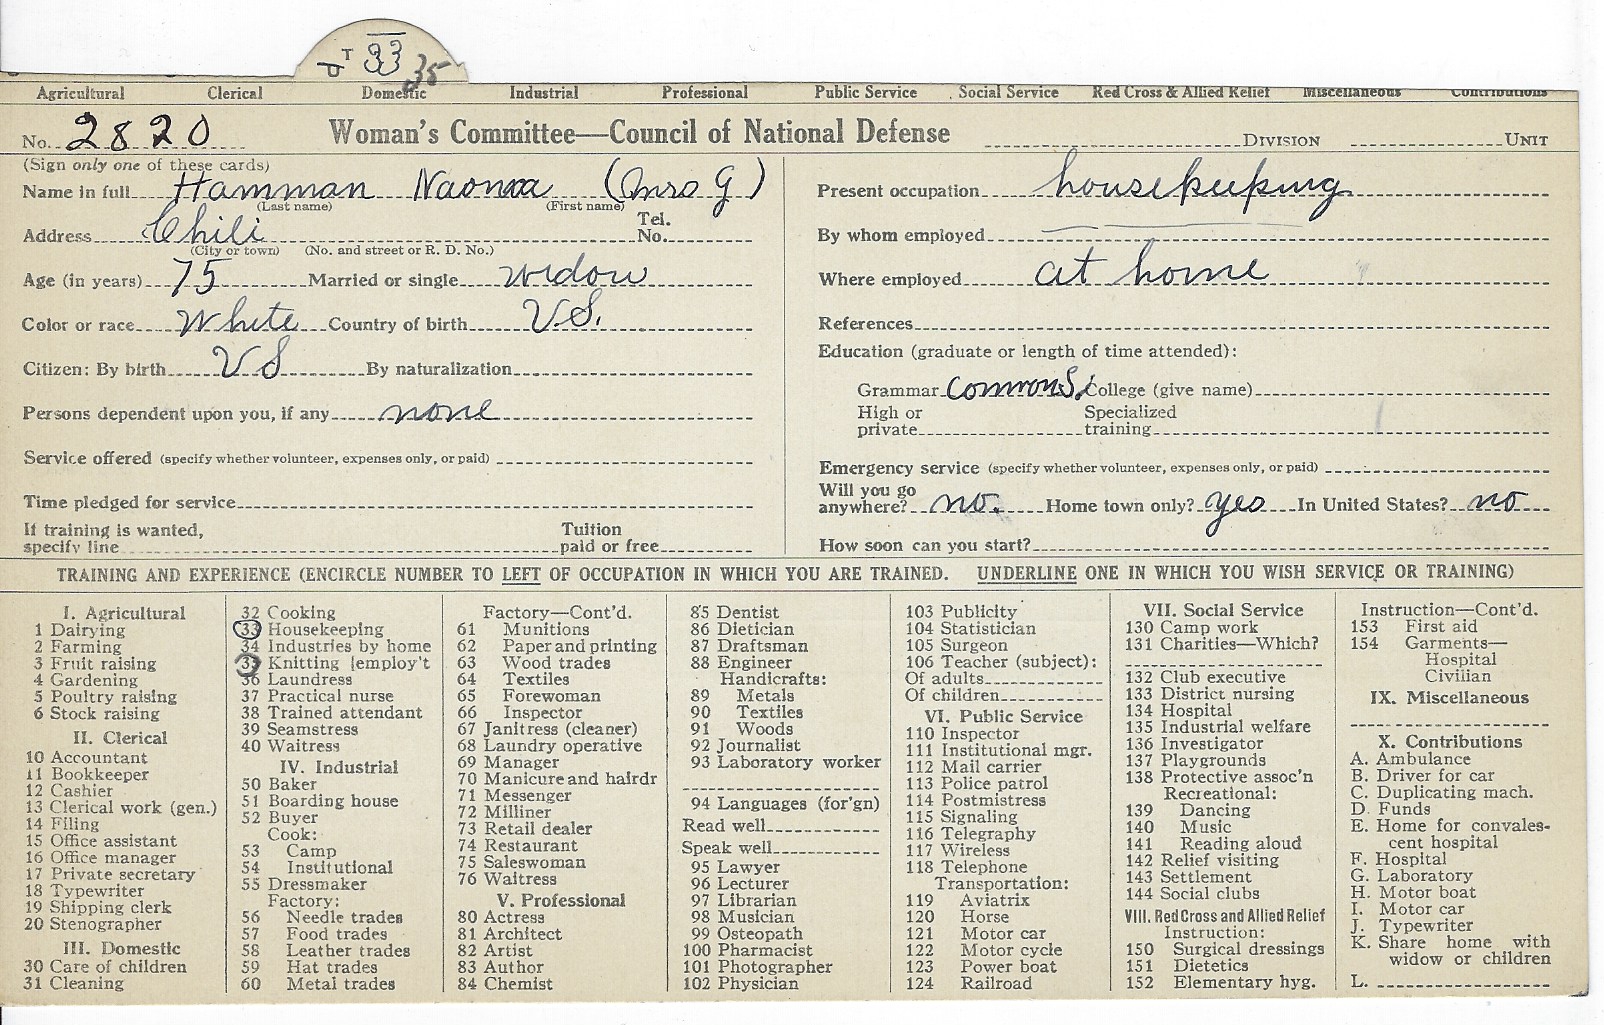 T 33 35
Agricultural Clerical Domestic Industrial Professional Public Service Social Service Red Cross & Allied Relief Miscellaneous Contributions
No. 2820 Woman's Committee—Council of National Defense DIVISION UNIT
(Sign only one of these cards)
Name in full Hamman Naoma (Mrs G)
(Last name) (First name)
Address Chili Tel. No.
(City or town) (No. and street or R. D. No.)
Age (in years) 75 Married or single widow
Color or race White Country of birth U.S.
Citizen: By birth U S By naturalization
Persons dependent upon you, if any none
Service offered (specify whether volunteer, expenses only, or paid)
Time pledged for service
If training is wanted, specify line Tuition paid or free
Present occupation housekeeping
By whom employed
Where employed at home
References
Education (graduate or length of time attended):
Grammar Common S. College (give name)
High or private Specialized training
Emergency service (specify whether volunteer, expenses only, or paid)
Will you go anywhere? no. Home town only? yes In United States? no
How soon can you start?
TRAINING AND EXPERIENCE (ENCIRCLE NUMBER TO LEFT OF OCCUPATION IN WHICH YOU ARE TRAINED. UNDERLINE ONE IN WHICH YOU WISH SERVICE OR TRAINING)
I. Agricultural
1 Dairying
2 Farming
3 Fruit raising
4 Gardening
5 Poultry raising
6 Stock raising
II. Clerical
10 Accountant
11 Bookkeeper
12 Cashier
13 Clerical work (gen.)
14 Filing
15 Office assistant
16 Office manager
17 Private secretary
18 Typewriter
19 Shipping clerk
20 Stenographer
III. Domestic
30 Care of children
31 Cleaning
32 Cooking
33 Housekeeping
34 Industries by home
35 Knitting [employ't
36 Laundress
37 Practical nurse
38 Trained attendant
39 Seamstress
40 Waitress
IV. Industrial
50 Baker
51 Boarding house
52 Buyer
Cook:
53 Camp
54 Institutional
55 Dressmaker
Factory:
56 Needle trades
57 Food trades
58 Leather trades
59 Hat trades
60 Metal trades
Factory—Cont'd.
61 Munitions
62 Paper and printing
63 Wood trades
64 Textiles
65 Forewoman
66 Inspector
67 Janitress (cleaner)
68 Laundry operative
69 Manager
70 Manicure and hairdr
71 Messenger
72 Milliner
73 Retail dealer
74 Restaurant
75 Saleswoman
76 Waitress
V. Professional
80 Actress
81 Architect
82 Artist
83 Author
84 Chemist
85 Dentist
86 Dietician
87 Draftsman
88 Engineer
Handicrafts:
89 Metals
90 Textiles
91 Woods
92 Journalist
93 Laboratory worker
94 Languages (for'gn)
Read well
Speak well
95 Lawyer
96 Lecturer
97 Librarian
98 Musician
99 Osteopath
100 Pharmacist
101 Photographer
102 Physician
103 Publicity
104 Statistician
105 Surgeon
106 Teacher (subject):
Of adults
Of children
VI. Public Service
110 Inspector
111 Institutional mgr.
112 Mail carrier
113 Police patrol
114 Postmistress
115 Signaling
116 Telegraphy
117 Wireless
118 Telephone
Transportation:
119 Aviatrix
120 Horse
121 Motor car
122 Motor cycle
123 Power boat
124 Railroad
VII. Social Service
130 Camp work
131 Charities—Which?
132 Club executive
133 District nursing
134 Hospital
135 Industrial welfare
136 Investigator
137 Playgrounds
138 Protective assoc'n
Recreational:
139 Dancing
140 Music
141 Reading aloud
142 Relief visiting
143 Settlement
144 Social clubs
VIII. Red Cross and Allied Relief
Instruction:
150 Surgical dressings
151 Dietetics
152 Elementary hyg.
Instruction—Cont'd.
153 First aid
154 Garments—
Hospital
Civilian
IX. Miscellaneous
X. Contributions
A. Ambulance
B. Driver for car
C. Duplicating mach.
D. Funds
E. Home for convales-
cent hospital
F. Hospital
G. Laboratory
H. Motor boat
I. Motor car
J. Typewriter
K. Share home with
widow or children
L.